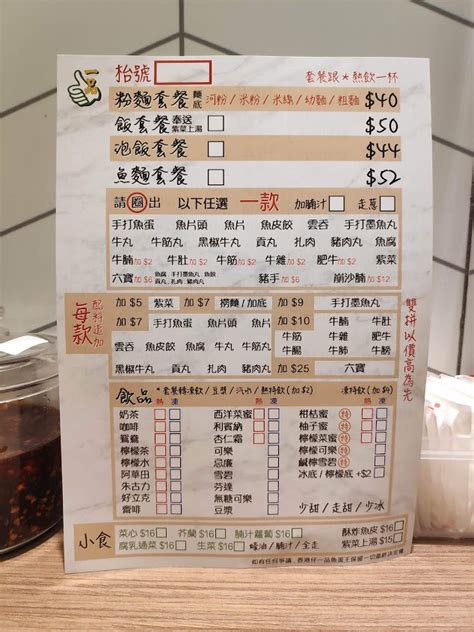 枱號
套餐跟★熱飲一杯
粉麵套餐 麵底 河粉/米粉/米線/幼麵/粗麵 $40
飯套餐 奉送紫菜上湯 $50
泡飯套餐 $44
魚麵套餐 $52
請圈出 以下任選 一款 加腩汁 走蔥
手打魚蛋 魚片頭 魚皮餃 雲吞 手打墨魚丸
牛丸 牛筋丸 黑椒牛丸 貢丸 扎肉 豬肉丸 魚腐
牛腩加$2 牛筋加$2 牛雜加$2 肥牛加$2 紫菜
六寶加$6 豬手加$6 崩沙腩加$12
配料追加 每款
加$5 紫菜 加$7 撈麵/加底 加$9 手打墨魚丸
加$7 手打魚蛋 魚片頭 牛丸 牛筋丸 加$10 牛腩 牛肚
雲吞 魚腐 魚皮餃 貢丸 扎肉 牛筋 牛雜
黑椒牛丸 豬肉丸 加$25 六寶
雙拼以價高為先
飲品 *套餐轉凍飲/豆漿/汽水/熱特飲(加$2) 凍特飲(加$4)
熱 凍 熱 凍 熱 凍
奶茶 西洋菜蜜 柑桔蜜 特
咖啡 利賓納 柚子蜜 特
鴛鴦 杏仁霜 檸檬菜蜜 特
檸檬茶 可樂 檸檬可樂
檸檬水 忌廉 檸檬雪碧
阿華田 雪碧 鹹檸雪碧
朱古力 芬達 冰底/檸檬底 +$2
好立克 無糖可樂
齋啡 豆漿 少甜/走甜/少冰
小食
菜心$16 芥蘭$16 腩汁蘿蔔$16 酥炸魚皮$16
腐乳通菜$16 生菜$16 蠔油/腩汁/全走 紫菜上湯$15